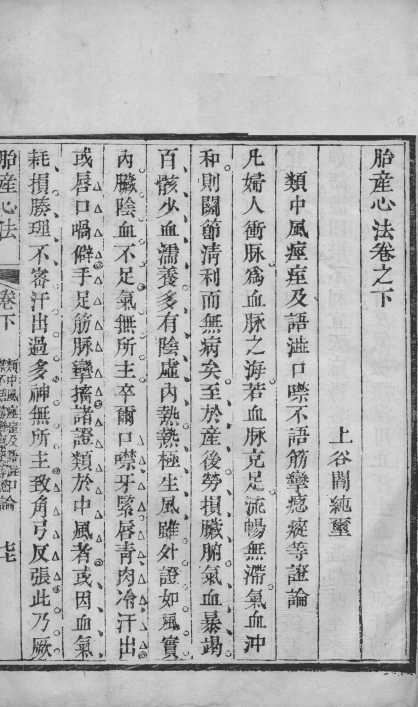 胎產心法卷之下
上谷閻純璽
類中風痙痓及語澁口噤不語筋攣瘛瘲等證論
凡婦人衝脉爲血脉之海若血脉充足流暢無滯氣血沖
和則關節淸利而無病矣至於産後勞損臟腑氣血暴竭
百骸少血濡養多有陰虛內熱熱極生風雖外證如風實
內臟陰血不足氣無所主卒爾口噤牙緊唇靑肉冷汗出
或唇口喎僻手足筋脉攣搐諸證類於中風者或因血氣
耗損腠理不審汗出過多神無所主致角弓反張此乃厥
胎産心法
卷下
類中風痙痓及語澁口
論
七